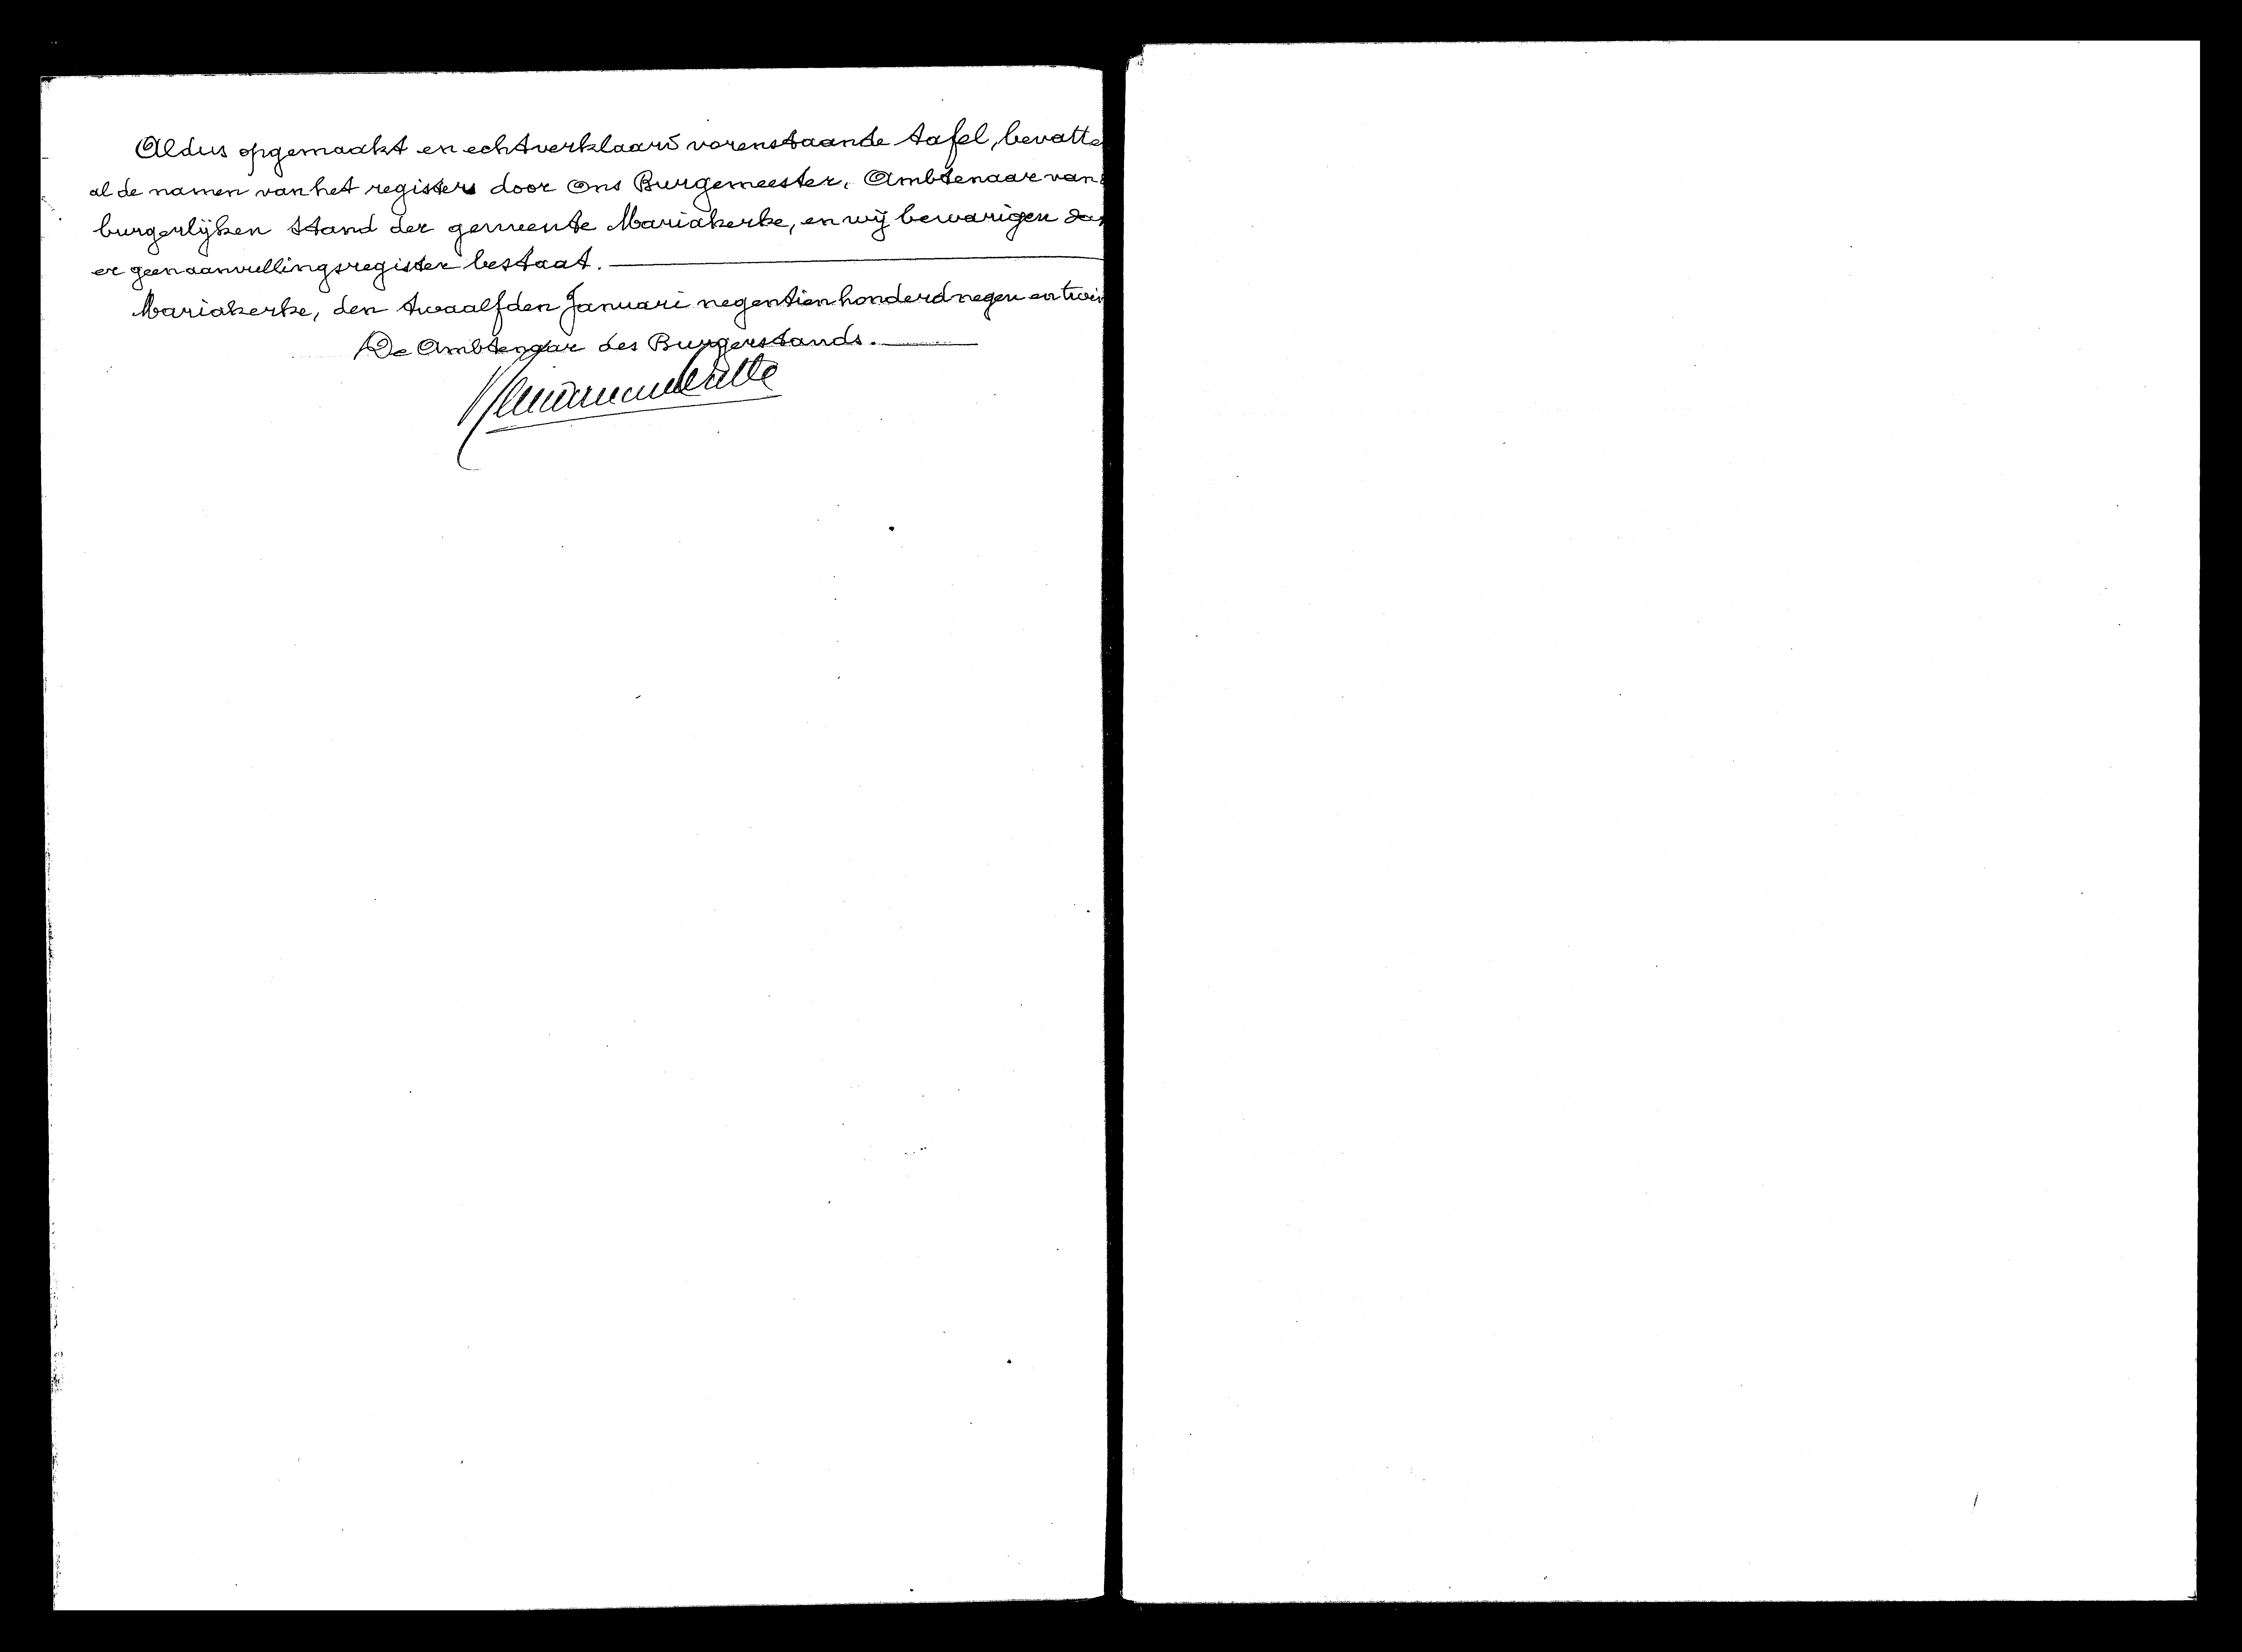 Aldus opgemaakt en echtverklaard vorenstaande tafel, bevatte
al de namen van het registers door Ons Burgemeester, Ambtenaar van
burgerlijken stand der gemeente Mariakerke, en wij bewarigen da
er geen aanvullingsregister bestaat.
Mariakerke, den twaalfden Januari negentien honderd negen en twin
De Ambtenaar des Burgerstands.